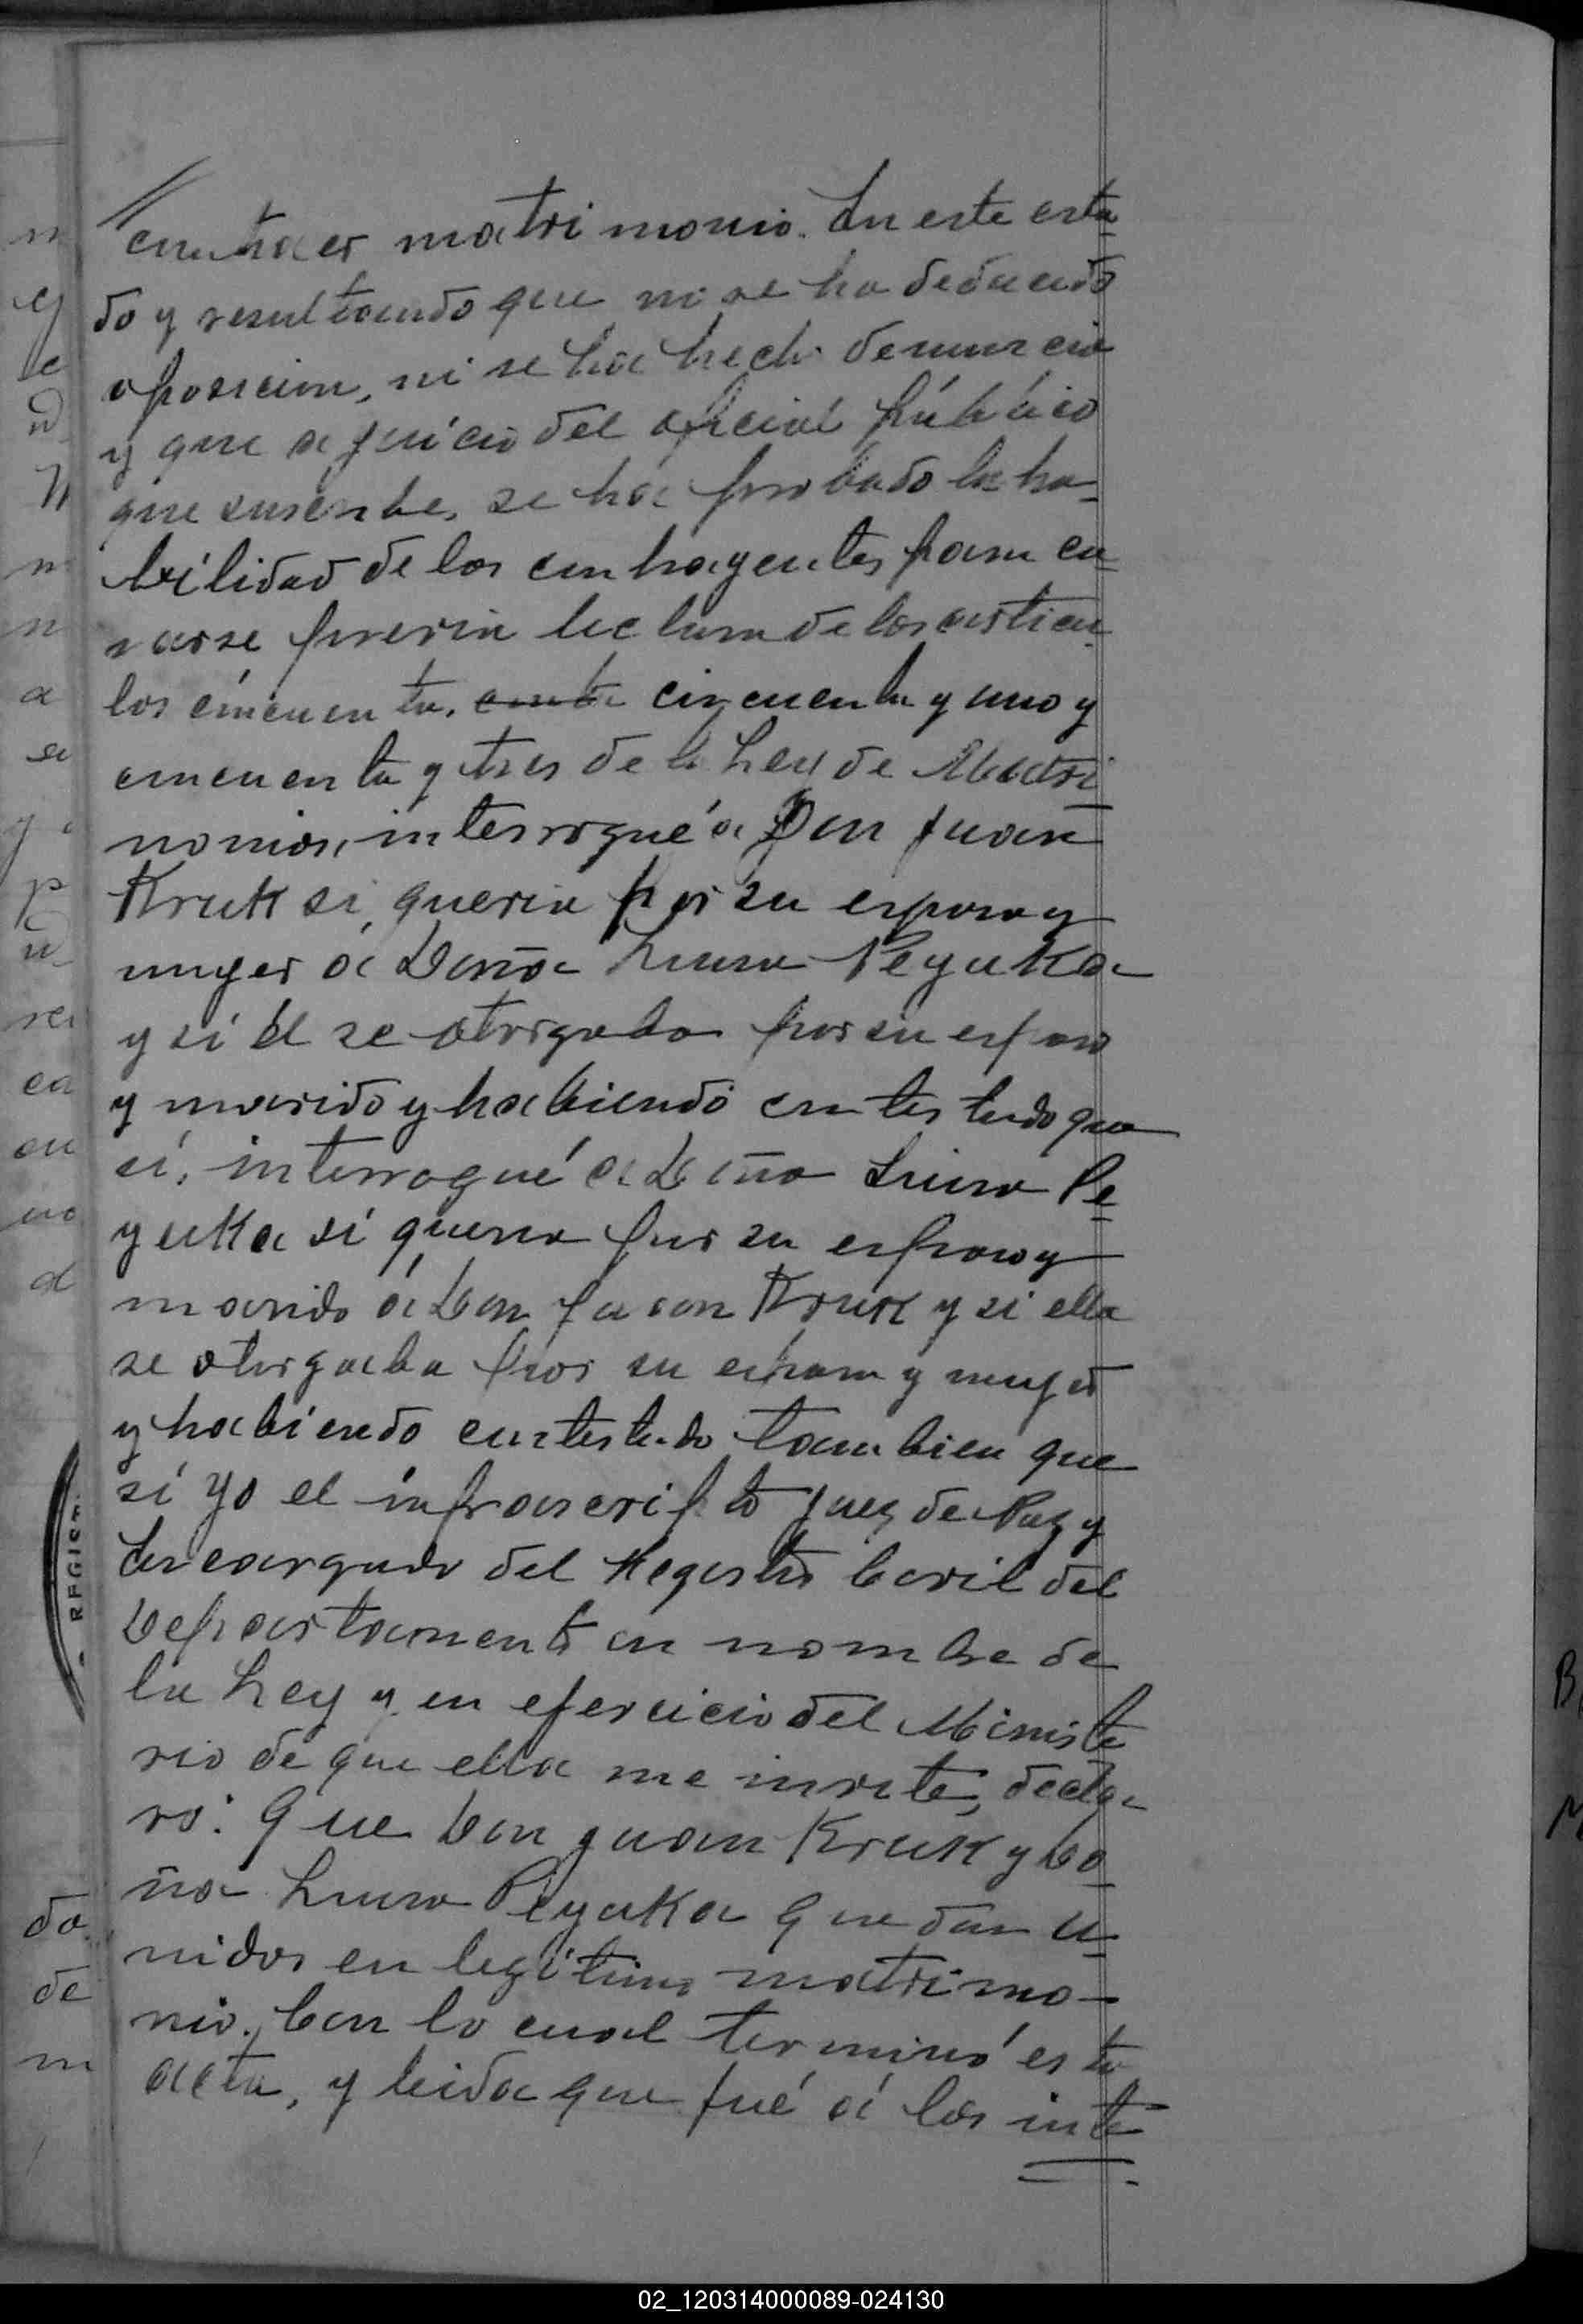 contraer matrimonio. En este esta
do y resultando que ni se ha deducido
oposicion, ni se ha hecho denuncia
y que a juicio del oficial público
que suscribe, se há probado la ha-
bilidad de los contrayentes para ca
sarse previa lectura de los articu
los cincuenta, cincuenta y uno y
cincuenta y tres de la Ley de Matri
nonios, interrogué a Don Juan
Kruk si queria por su esposa y
muger á Doña Peyuka
y si él se otorgaba por su esposo
y marido y habiendo contestado que
sí, interrogué a Doña Pe
yuka si queria por su esposo y
marido á Don Juan Kruk y si ella
se otorgaba por su esposa y muger
y habiendo contestado tambien que
sí Yo el infrascripto Juez de Paz y
Encargado del Registro Civil del
Departamento en nombre de
la Ley y en ejercicio del Ministe
rio de que ella me inviste, decla
ro: Que Don Juan Kruk y Do
ña Peyuka quedan u
nidos en legítimo matrimo-
nio. Con lo cual terminó esta
acta, y leida que fué á los inte
REGISTR
02_120314000089-024130